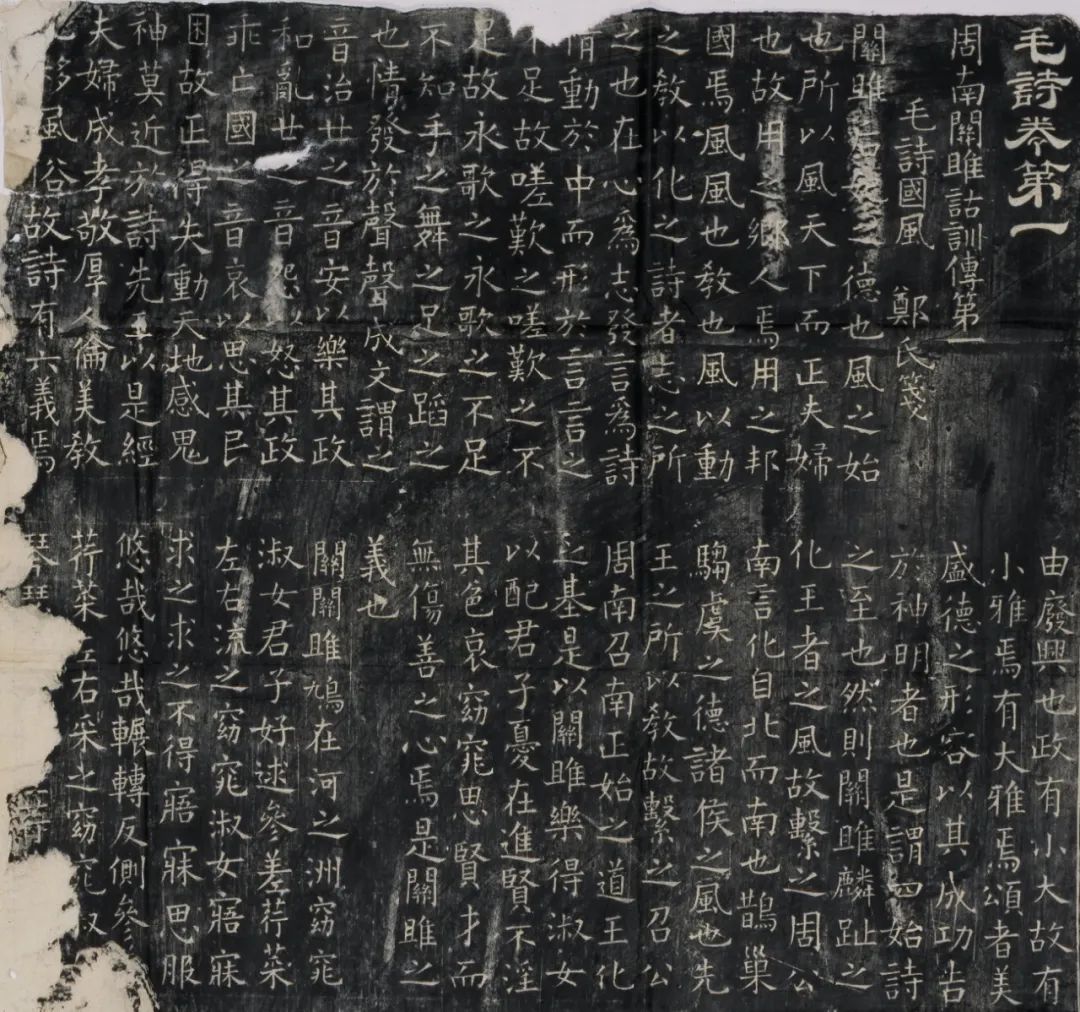 毛詩卷第一
周南關雎詁訓傳第一
毛詩國風 鄭氏箋
關雎后妃之德也風之始
也所以風天下而正夫婦
也故用之鄉人焉用之邦
國焉風風也教也風以動
之教以化之詩者志之所
之也在心為志發言為詩
情動於中而形於言言之
不足故嗟歎之嗟歎之不
足故永歌之永歌之不足
不知手之舞之足之蹈之
也情發於聲聲成文謂之
音治世之音安以樂其政
和亂世之音怨以怒其政
乖亡國之音哀以思其民
困故正得失動天地感鬼
神莫近於詩先王以是經
夫婦成孝敬厚人倫美教
移風俗故詩有六義焉
由廢興也政有小大故有
小雅焉有大雅焉頌者美
盛德之形容以其成功告
於神明者也是謂四始詩
之至也然則關雎麟趾之
化王者之風故繫之周公
南言化自北而南也鵲巢
騶虞之德諸侯之風也先
王之所以教故繫之召公
周南召南正始之道王化
之基是以關雎樂得淑女
以配君子憂在進賢不淫
其色哀窈窕思賢才而
無傷善之心焉是關雎之
義也
關關雎鳩在河之洲窈窕
淑女君子好逑參差荇菜
左右流之窈窕淑女寤寐
求之求之不得寤寐思服
悠哉悠哉輾轉反側參
荇菜左右采之窈窕淑
琴